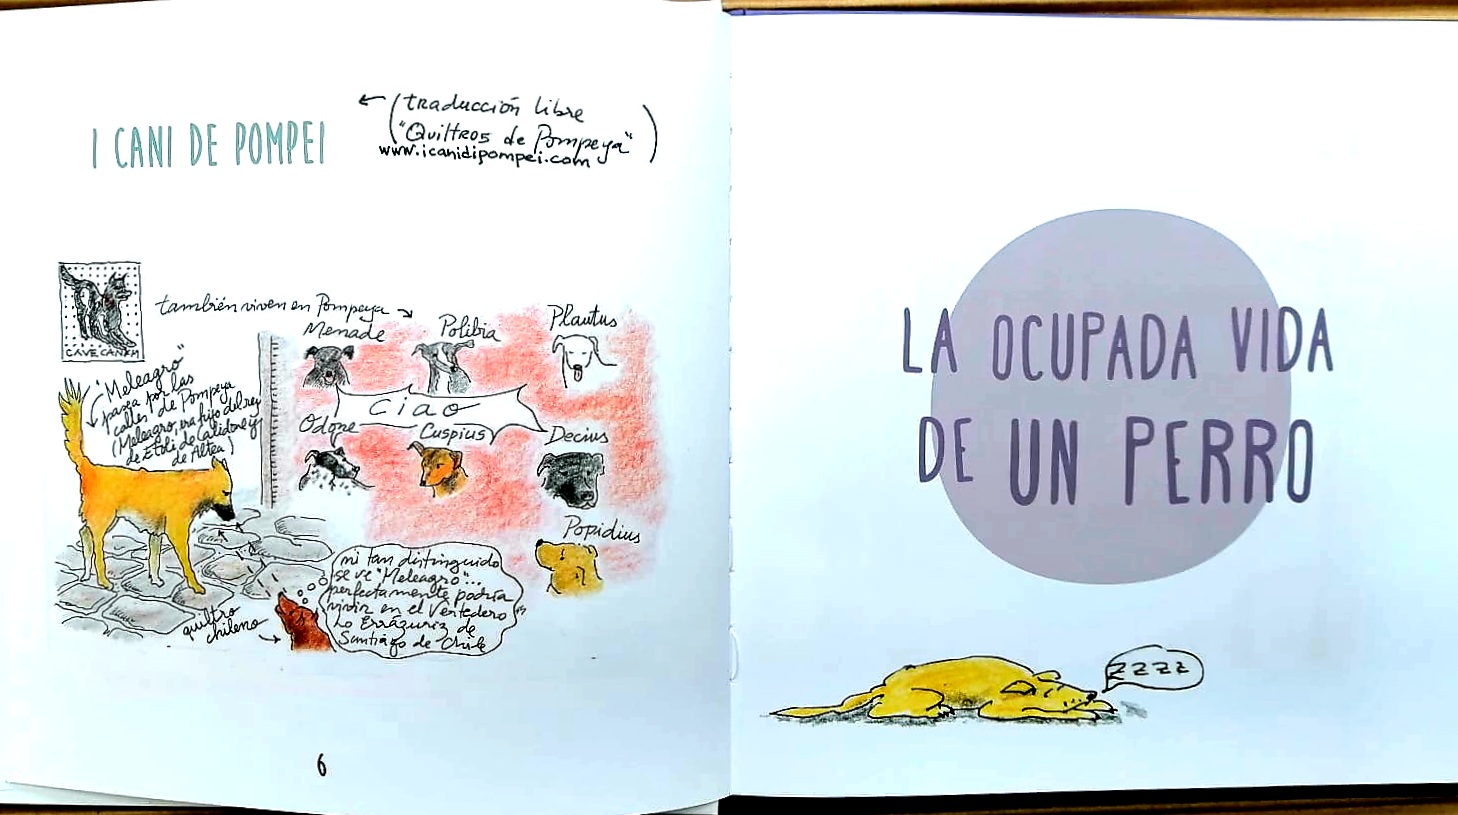 I CANI DE POMPEI
← (traducción libre
"Quiltros de Pompeya")
www.icanidipompei.com
CAVE CANEM
también viven en Pompeya →
"Meleagro"
pasea por las
calles de Pompeya
(Meleagro, era hijo del rey
de Etoli de Calidone y
de Altea)
Menade
Polibia
Plautus
Ciao
Odone
Cuspius
Decius
Popidius
mi tan distinguido
se ve "Meleagro"...
perfectamente podría
vivir en el Vertedero
Lo Errázuriz de
Santiago de Chile
quiltro
chileno →
6
LA OCUPADA VIDA
DE UN PERRO
ZZZZ